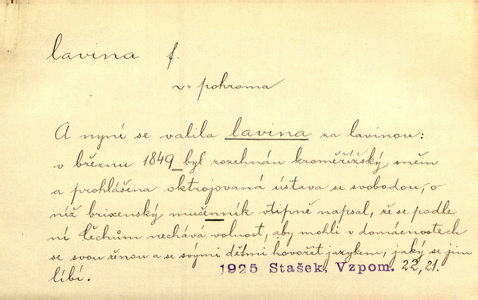 lavina f.
v= pohroma
A nyní se valila lavina za lavinou:
v březnu 1849 byl rozehnán kroměřížský sněm
a prohlášena oktrojovaná ústava se svobodou, o
níž brixenský mučenník vtipně napsal, že se podle
ní Čechům nechává volnost, aby mohli v domácnostech
se svou ženou a se svými dětmi hovořit jazykem, jaký se jim
líbí.
1925 Stašek, Vzpom. 22, 21.